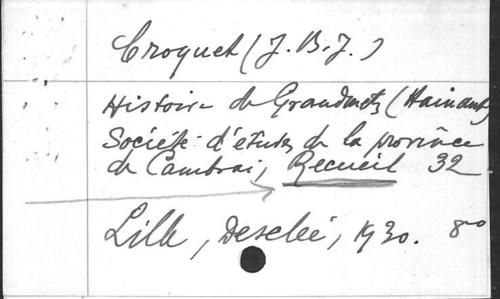 Croquet (J. B. J.)
Histoire de Grandmetz (Hainaut)
Société d'études de la province
de Cambrai, Recueil 32
Lille, Desclée, 1930. 8°